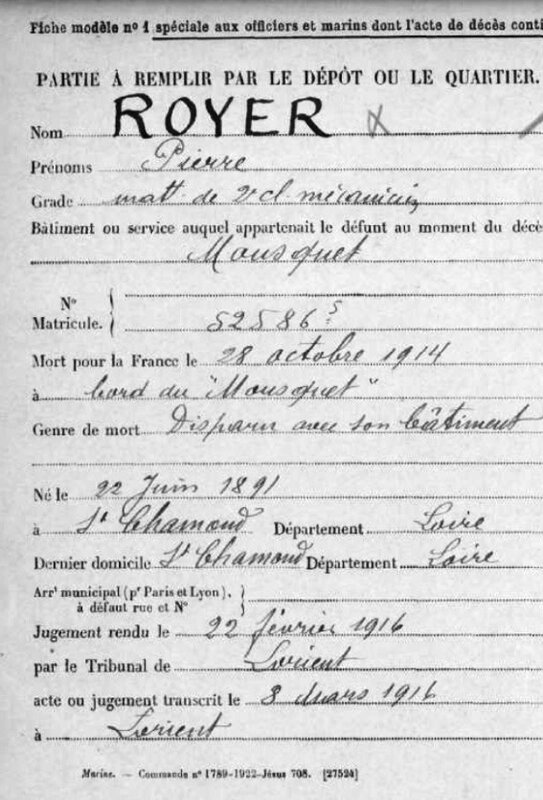 Fiche modèle n° 1 spéciale aux officiers et marins dont l'acte de décès conti
PARTIE À REMPLIR PAR LE DÉPÔT OU LE QUARTIER.
Nom ROYER
Prénoms Pierre
Grade matt de 2e cl mécanicien
Bâtiment ou service auquel appartenait le défunt au moment du décè
Mousquet
N°
Matricule. 52586 5
Mort pour la France le 28 octobre 1914
à bord du "Mousquet"
Genre de mort Disparu avec son bâtiment
Né le 22 Juin 1891
à St Chamond Département Loire
Dernier domicile St Chamond Département Loire
Arrt municipal (pr Paris et Lyon),
à défaut rue et N°
Jugement rendu le 22 février 1916
par le Tribunal de Lorient
acte ou jugement transcrit le 8 mars 1916
à Lorient
Marine. — Commande n° 1789-1922-Jésus 708. [27524]